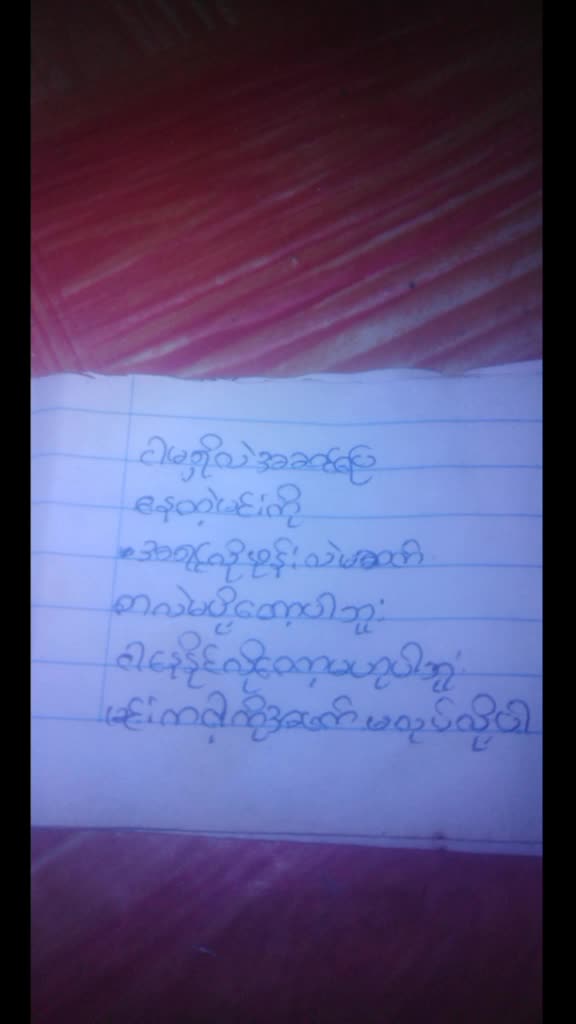 ငါမရှိလဲအဆင်ပြေ
နေတဲ့မင်းကို
အရင်လိုဖုန်းလဲမဆက်
စာလဲမပို့တော့ပါဘူး
ငါနေနိုင်လို့တော့မဟုပါဘူး
မင်းကငါ့ကိုအဖက်မလုပ်လို့ပါ